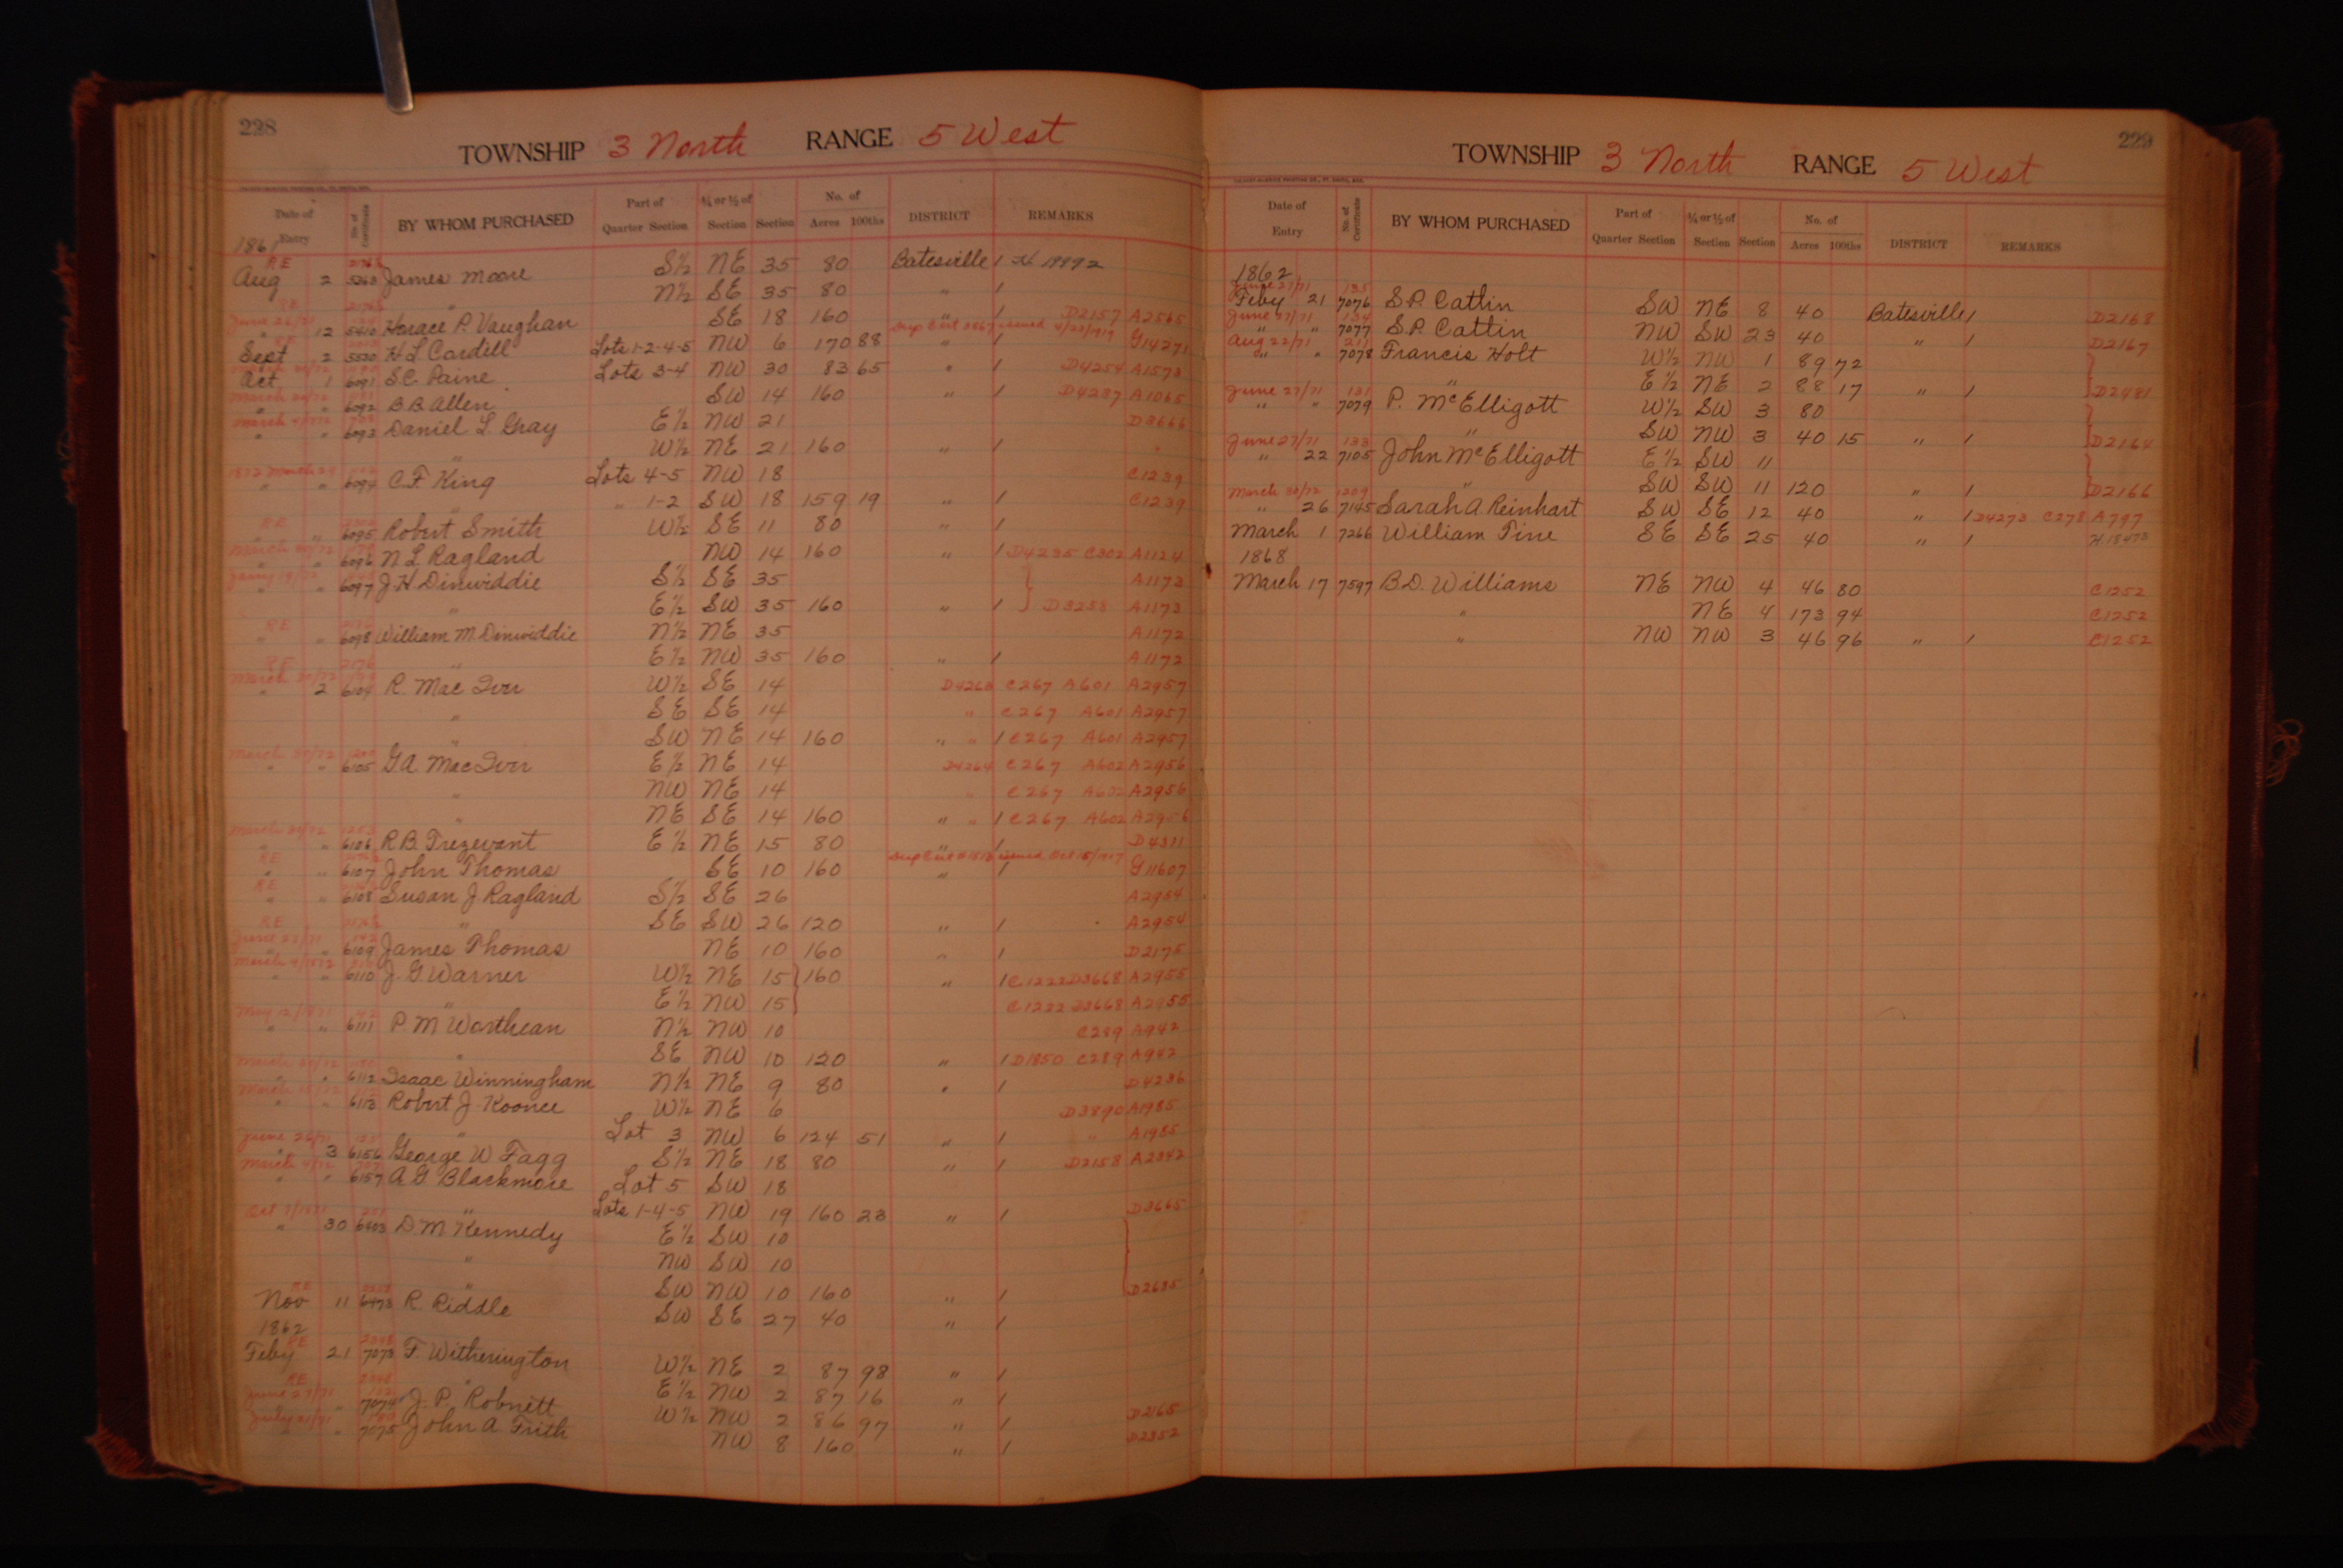 228
TOWNSHIP 3 North RANGE 5 West
Date of Entry No. of Certificate BY WHOM PURCHASED Part of Quarter Section ¼ or ½ of Section Section No. of Acres 100ths DISTRICT REMARKS
1861
RE
Aug 2 5363 James Moore S½ NE 35 80 Batesville /
" N½ SE 35 80 " /
June 26/71
" 12 5410 Horace P. Vaughan SE 18 160 " / D2157 A2565
Sept 2 5530 H L Cardell Lots 1-2-4-5 NW 6 170 88 " / G14271
Oct 1 6091 S.E. Paine Lots 3-4 NW 30 83 65 " / D4254 A1573
" " 6092 B.B. Allen SW 14 160 " / D4237 A1065
" " 6093 Daniel L. Gray E½ NW 21 D3666
" W½ NE 21 160 " /
1872 March 29
" " 6094 C.F. King Lots 4-5 NW 18 C1239
" " 1-2 SW 18 159 19 " / C1239
RE
" " 6095 Robert Smith W½ SE 11 80 " /
March 30/72
" " 6096 N L Ragland NW 14 160 " / D4235 C302 A1124
" " 6097 J.H. Dinwiddie S½ SE 35 A1173
" E½ SW 35 160 " / D3253 A1173
RE
" " 6098 William M Dinwiddie N½ NE 35 A1172
" E½ NW 35 160 " / A1172
RE 2176
March 30/72
" 2 6104 R. Mac Iver W½ SE 14 D4263 C267 A601 A2957
" SE SE 14 " C267 A601 A2957
" SW NE 14 160 " " / C267 A601 A2957
March 30/72
" " 6105 G.A. Mac Iver E½ NE 14 D4264 C267 A602 A2956
" NW NE 14 " C267 A602 A2956
" NE SE 14 160 " " / C267 A602 A2956
March 30/72
" " 6106 R.B. Trezevant E½ NE 15 80 " / D4311
RE
" " 6107 John Thomas SE 10 160 " / G11607
RE
" " 6108 Susan J. Ragland S½ SE 26 A2954
" SE SW 26 120 " / A2954
RE
June 27/71
" " 6109 James Thomas NE 10 160 " / D2175
March 4/1872
" " 6110 J. G Warner W½ NE 15 160 " / C1222 D3668 A2955
" E½ NW 15 C1222 D3668 A2955
May 12/1871 42
" " 6111 P M Worthean N½ NW 10 C289 A942
" SE NW 10 120 " / D1850 C289 A942
March 30/72
" " 6112 Isaac Winningham N½ NE 9 80 " / D4236
" " 6113 Robert J. Koonce W½ NE 6 D3890 A1985
" Lot 3 NW 6 124 51 " / " A1985
June 26/71
" 3 6156 George W Fagg S½ NE 18 80 " / D2158 A2342
March 4/72
" " 6157 A G Blackmore Lot 5 SW 18
" Lots 1-4-5 NW 19 160 23 " / D3665
Oct 7/1871 251
" 30 6403 D.M Kennedy E½ SW 10
" NW SW 10
" SW NW 10 160 " / D2635
RE
Nov 11 6473 R. Riddle SW SE 27 40 " /
1862
RE
Feby 21 7073 F. Witherington W½ NE 2 87 98 " /
RE
" E½ NW 2 87 16 " /
June 27/71 132
" " 7074 J. P. Robnett W½ NW 2 86 97 " / D2165
July 21/71 180
" " 7075 John A. Frith NW 8 160 " / D2352
229
TOWNSHIP 3 North RANGE 5 West
Date of Entry No. of Certificate BY WHOM PURCHASED Part of Quarter Section ¼ or ½ of Section Section No. of Acres 100ths DISTRICT REMARKS
1862
June 27/71 135
Feby 21 7076 S.P. Catlin SW NE 8 40 Batesville / D2168
June 27/71 134
" " 7077 S.P. Catlin NW SW 23 40 " / D2167
Aug 22/71 211
" " 7078 Francis Holt W½ NW 1 89 72
" E½ NE 2 88 17 " / D2481
June 27/71 131
" " 7079 P. McElligott W½ SW 3 80
" SW NW 3 40 15 " / D2164
June 27/71 133
" 22 7105 John McElligott E½ SW 11
" SW SW 11 120 " / D2166
March 30/72 1209
" 26 7145 Sarah A Reinhart SW SE 12 40 " / D4273 C278 A797
March 1 7266 William Tine SE SE 25 40 " /
1868
March 17 7597 B.D. Williams NE NW 4 46 80 C1252
" NE 4 173 94 C1252
" NW NW 3 46 96 " / C1252